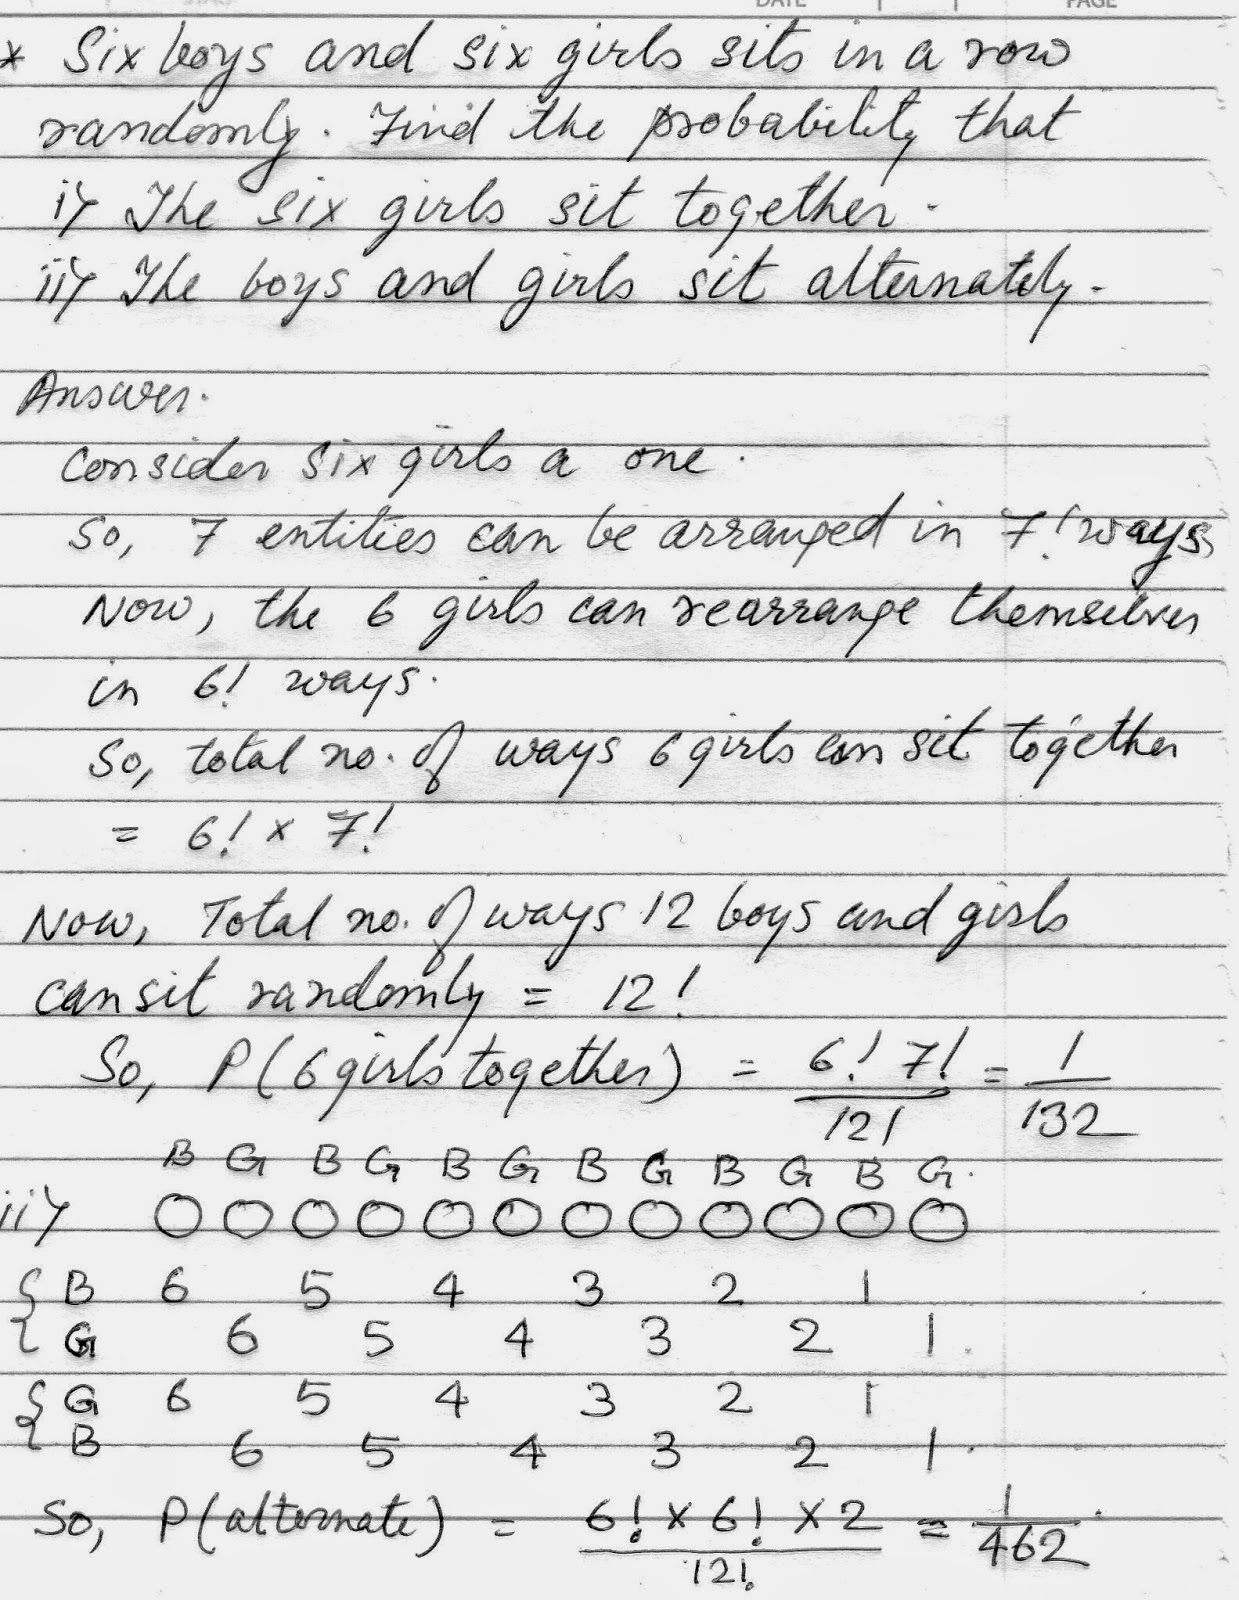 DATE PAGE
* Six boys and six girls sits in a row
randomly. Find the probability that
i) The six girls sit together.
ii) The boys and girls sit alternately.
Answer.
Consider six girls a one.
So, 7 entities can be arranged in 7! ways
Now, the 6 girls can rearrange themselves
in 6! ways.
So, total no. of ways 6 girls can sit together
= 6! × 7!
Now, Total no. of ways 12 boys and girls
can sit randomly = 12!
So, P(6 girls together) = 6! 7! / 12! = 1 / 132
B G B G B G B G B G B G.
ii) ○ ○ ○ ○ ○ ○ ○ ○ ○ ○ ○ ○
{ B 6 5 4 3 2 1
G 6 5 4 3 2 1.
{ G 6 5 4 3 2 1
B 6 5 4 3 2 1.
So, P(alternate) = 6! × 6! × 2 / 12! = 1 / 462.